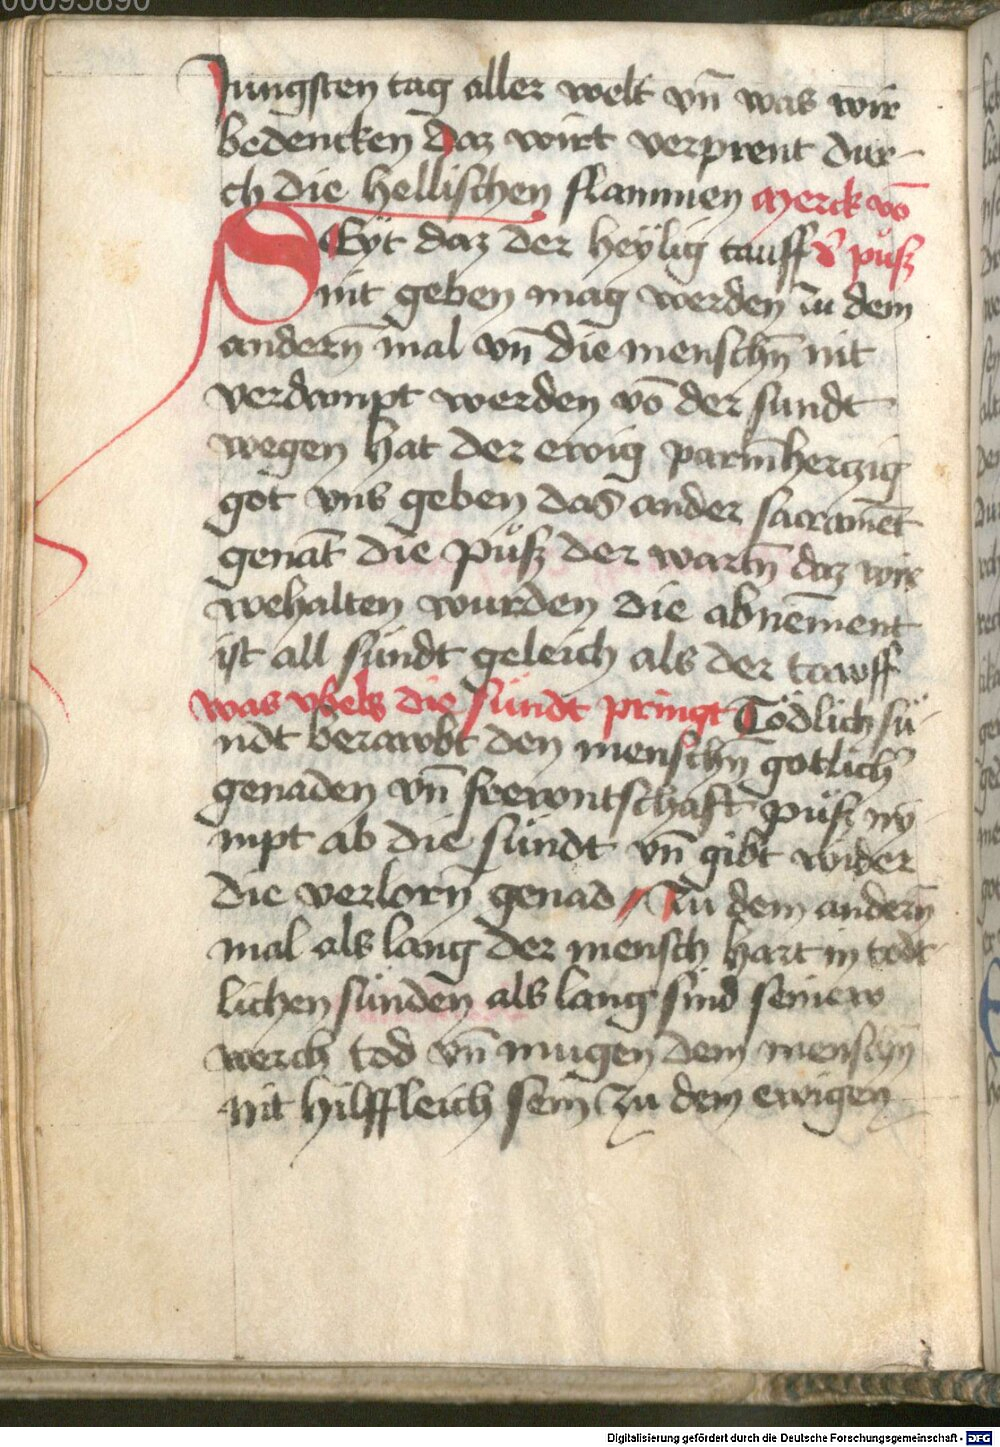 00095890
Jungsten tag aller welt vn̄ was wir
bedencken daz wirt verprent dur-
ch die hellischen flammen Merck vō
SEyt daz der heÿlig tauff d' pùß
nit geben mag werden zu dem
andern̄ mal vn̄ die menschn̄ nit
verdampt werden vō der sundt
wegen hat der ewig parm̄herczig
got vns geben das ander sacramēt
genāt die pùß der wartn̄ daz wir
wehalten wurden die abnēment
ist all sündt geleich als der tawff
was vbels die sündt pringt Tödlich sü-
ndt berawbt den menschn̄ götlich'
genaden vn̄ frewntschaft pùß ny-
mpt ab die sündt vn̄ gibt wider
die verlorn̄ genad // Zu dem andern̄
mal als lang der mensch hart in tödt-
lichen sünden als lang sind seinew
werch tod vn̄ mugen dem menschn̄
nit hilffleich sein zu dem ewigen
Digitalisierung gefördert durch die Deutsche Forschungsgemeinschaft - DFG